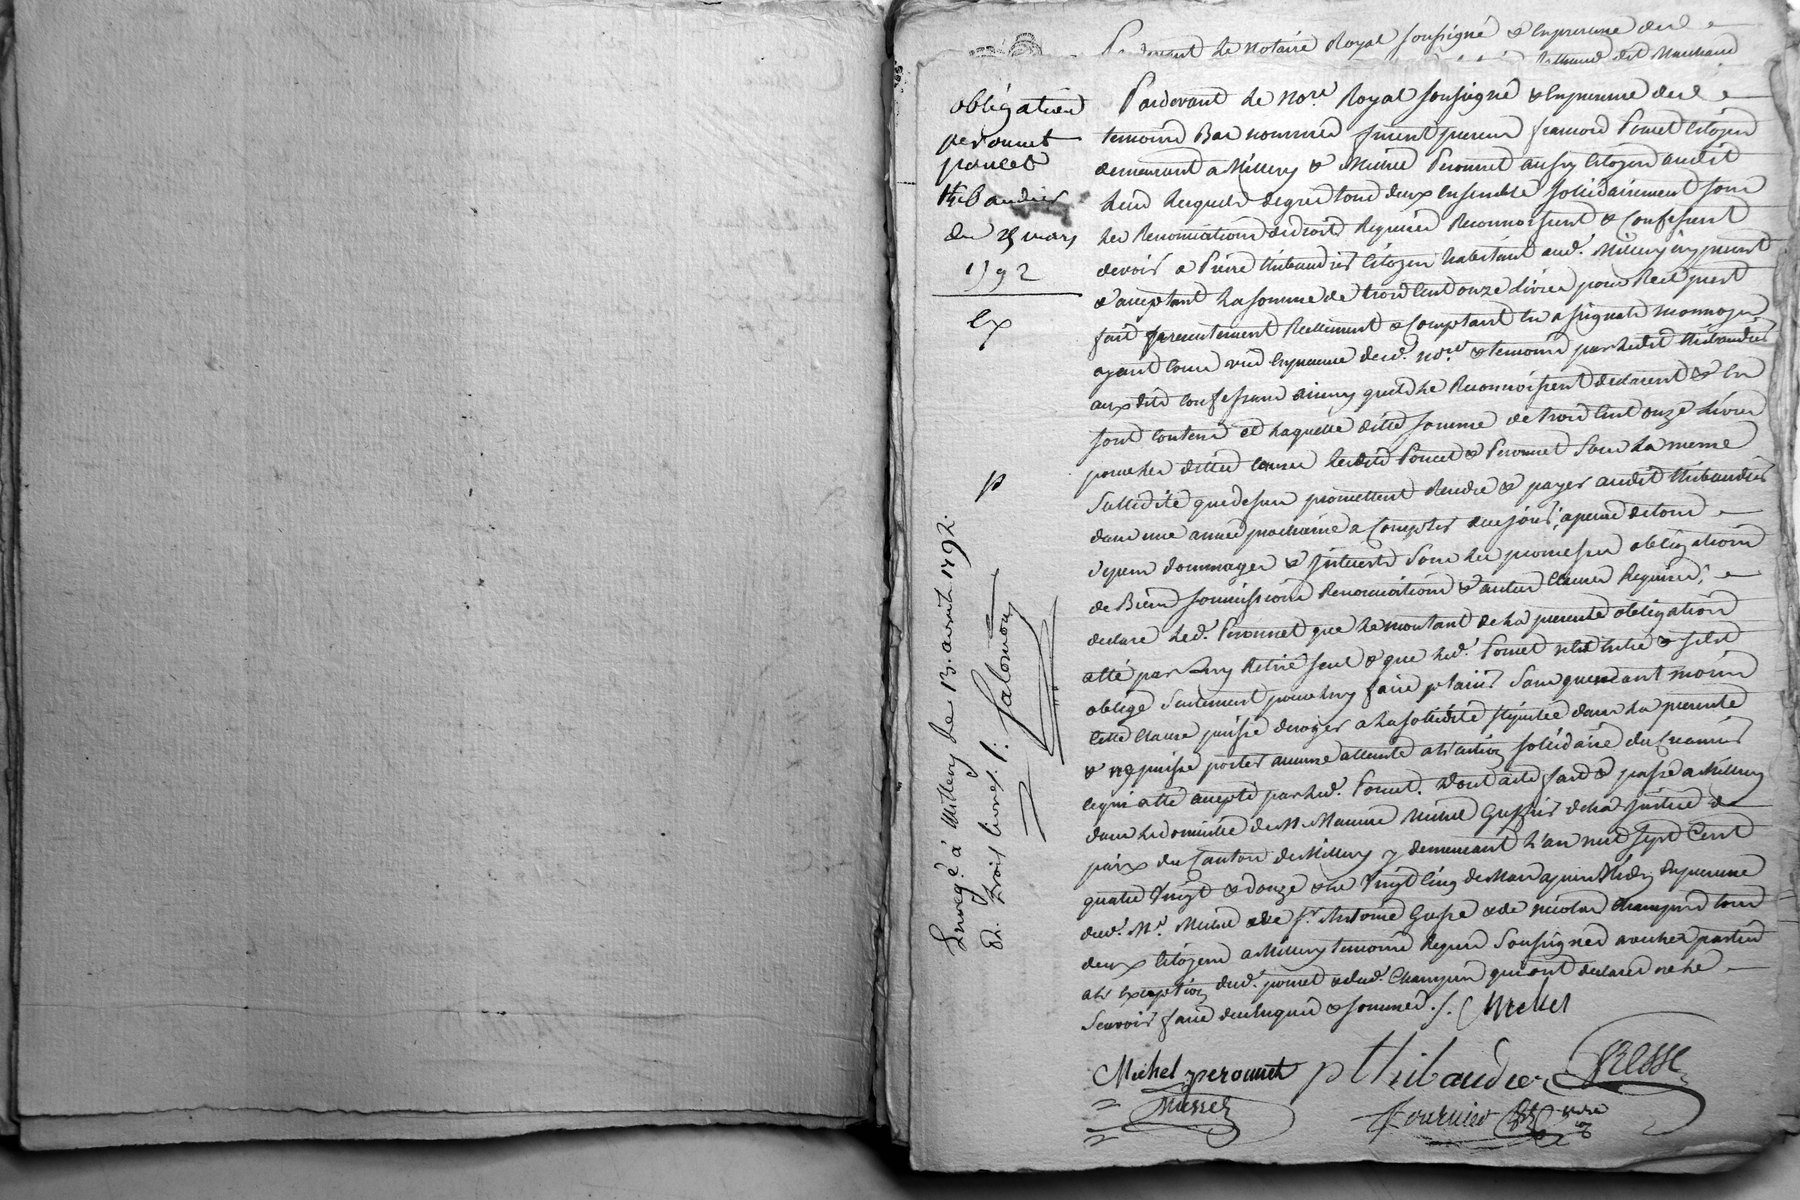 devant le notaire Royal soussigné & En presence des
obligation
peronnet
poncet
thibaudier
du 25 mars
1792
Ex
p
Enregé. á Millery le 13. avril 1792.
R. trois livres. /. Salomon
Pardevant le Nore Royal soussigné & En presence des
temoins Bas nommés furent presens françois Poncet Citoyen
demeurant a Millery & Michel Peronnet aussy Citoyen audit
lieu lesquels degrés tous deux ensemble solidairement sous
les Renonciations de droits Requises Reconnoissent & Confessent
devoir a Pierre thibaudier Citoyen habitant aud. Millery icy present
& acceptant la somme de trois Cent onze Livres pour Reel prest
fait presentement Reellement & Comptant En assignats monnoye
ayant cours vue En presence desd. nore & temoins par ledit thibaudier
auxdits confessans ainsy quils le Reconnoissent declarent & En
sont contens et laquelle ditte somme de trois Cent onze Livres
pour les dittes causes lesdits Poncet & Peronnet sous la meme
Solidité que dessus promettent Rendre & payer audit thibaudier
dans une année prochaine a Compter de ce jour, a peine de tous
depens dommages & Interets sous les promesses obligations
de Biens soumissions Renonciations & autres Clauses Requises,
declare led. Peronnet que le montant de la presente obligation
a été par Luy Retiré seul & que led. Poncet n'est Entré & s'est
obligé seulement pour luy faire plaisir sans que neant moins
Cette Clause puisse deroger a la solidité stipulée dans la presente
& ne puisse porter aucune atteinte a l'action solidaire du Creancier
ce qui a été accepté par led. Poncet. Dont acte fait & passé a Millery
dans le domicile de Me Michel Greffier de la justice de
paix du Canton de Millery y demeurant L'an mil sept Cent
quatre Vingt & douze & le Vingt Cinq de Mars apres Midy En presence
dud. Me. Michel & de sr. Antoine Gresse & de nicolas Champin tous
deux Citoyens a Millery temoins Requis Soussignés avec les parties
a l'exception dud. poncet & dud. Champin qui ont declarés ne le
Scavoir faire de ce Enquis & sommés. /. Michel
Michel peronnet p thibaudier GRESSE